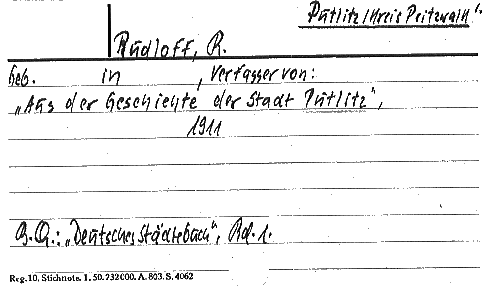 Putlitz/Kreis Pritzwalk".
Rudloff, R.
Geb. in , Verfasser von:
"Aus der Geschichte der Stadt Putlitz",
1911
B.Q.: "Deutsches Städtebuch", Bd. 1.
Reg. 10. Stichnote. 1. 50. 232000. A. 803. S. 4062